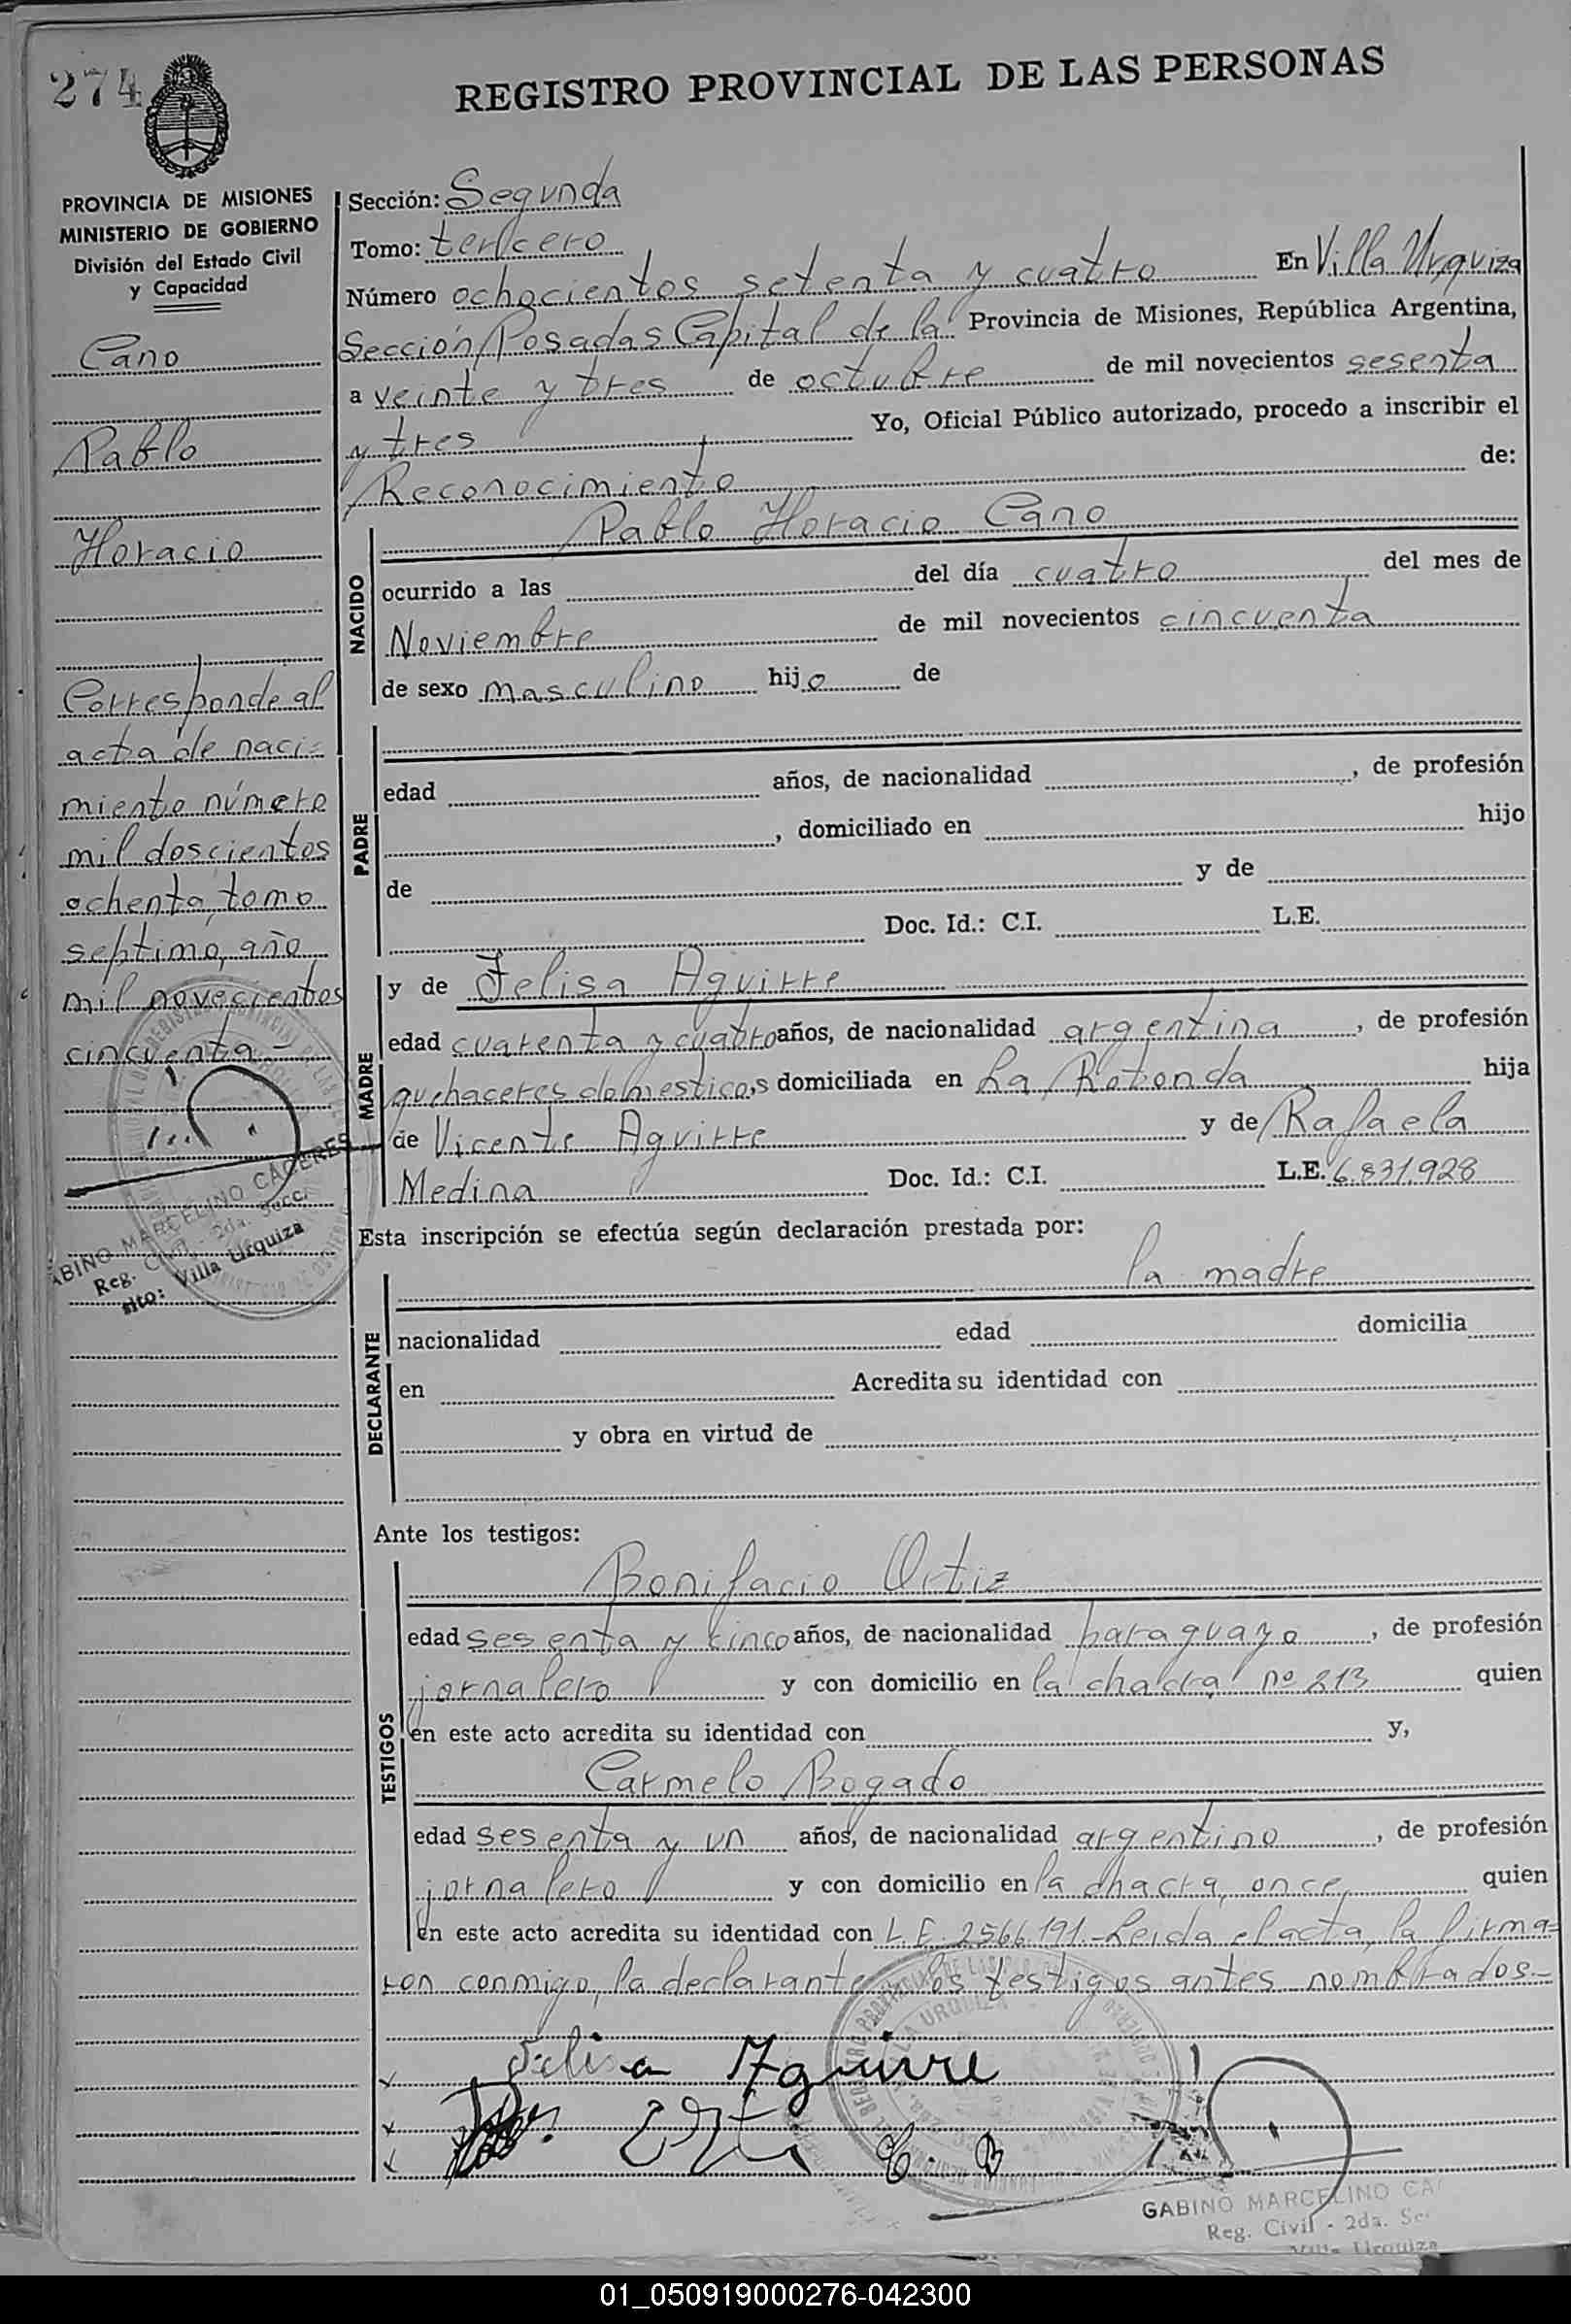 274
REGISTRO PROVINCIAL DE LAS PERSONAS
PROVINCIA DE MISIONES
MINISTERIO DE GOBIERNO
División del Estado Civil
y Capacidad
Cano
Pablo
Horacio
Corresponde al
acta de naci-
miento número
mil doscientos
ochenta, tomo
septimo, año
mil novecientos
cincuenta-
GABINO MARCELINO CACERES
Reg. Civil - 2da. Secc.
sito: Villa Urquiza
Sección: Segunda
Tomo: tercero
Número ochocientos setenta y cuatro En Villa Urquiza
Sección, Posadas Capital de la Provincia de Misiones, República Argentina,
a veinte y tres de octubre de mil novecientos sesenta
y tres Yo, Oficial Público autorizado, procedo a inscribir el
Reconocimiento de:
NACIDO
Pablo Horacio Cano
ocurrido a las del día cuatro del mes de
Noviembre de mil novecientos cincuenta
de sexo masculino hijo de
PADRE
edad años, de nacionalidad , de profesión
, domiciliado en hijo
de y de
Doc. Id.: C.I. L.E.
MADRE
y de Felisa Aguirre
edad cuarenta y cuatro años, de nacionalidad argentina , de profesión
quehaceres domesticos, domiciliada en La Rotonda hija
de Vicente Aguirre y de Rafaela
Medina Doc. Id.: C.I. L.E. 6.831.928
Esta inscripción se efectúa según declaración prestada por:
DECLARANTE
la madre
nacionalidad edad domicilia
en Acredita su identidad con
y obra en virtud de
Ante los testigos:
TESTIGOS
Bonifacio Ortiz
edad sesenta y cinco años, de nacionalidad paraguayo , de profesión
jornalero y con domicilio en la chacra nº 213 quien
en este acto acredita su identidad con y,
Carmelo Bogado
edad sesenta y un años, de nacionalidad argentino , de profesión
jornalero y con domicilio en la chacra once, quien
en este acto acredita su identidad con L.E. 2566.191.-Leida el acta, la firma=
ron conmigo, la declarante, los testigos antes nombrados.-
Felisa Aguirre
C. B
GABINO MARCELINO CA
Reg. Civil - 2da. Se
Villa Urquiza
01_050919000276-042300